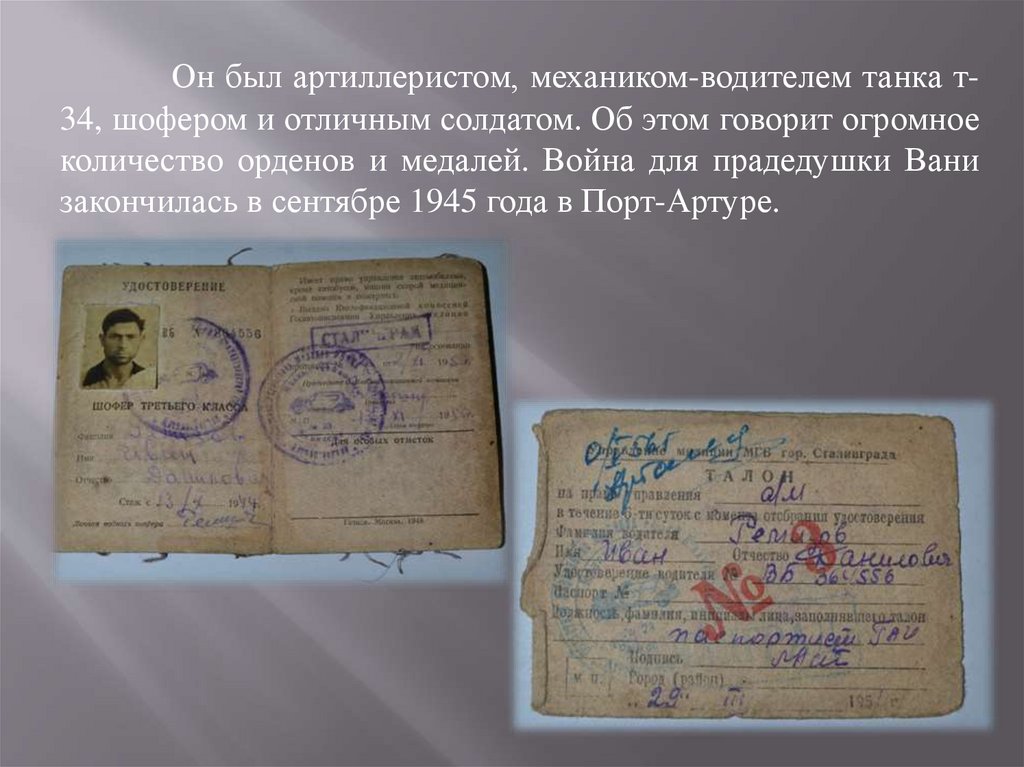 Он был артиллеристом, механиком-водителем танка т-
34, шофером и отличным солдатом. Об этом говорит огромное
количество орденов и медалей. Война для прадедушки Вани
закончилась в сентябре 1945 года в Порт-Артуре.
УДОСТОВЕРЕНИЕ
ШОФЕР ТРЕТЬЕГО КЛАССА
Фамилия
Имя
Отчество
Стаж с
Личная подпись шофера
Имеет право управления автомобилями,
кроме автобусов, машин скорой медицин-
ской помощи и пожарных.
Для особых отметок
Гознак. Москва. 1948
Управление милиции МГБ гор. Сталинграда
ТАЛОН
на право управления а/м
в течение 6-ти суток с момента отобрания удостоверения
Фамилия водителя Ремизов
Имя Иван Отчество Данилович
Удостоверение водителя № ВБ 364556
Паспорт №
Должность, фамилия, инициалы лица, заполнявшего талон
паспортист ГАИ
Подпись
М. П. Город (район)
"29" III 195
№ 3